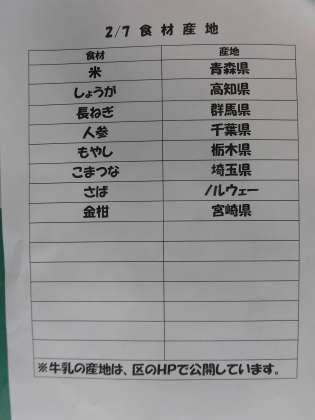 2/7 食材産地
食材 産地
米 青森県
しょうが 高知県
長ねぎ 群馬県
人参 千葉県
もやし 栃木県
こまつな 埼玉県
さば ノルウェー
金柑 宮崎県
※牛乳の産地は、区のHPで公開しています。